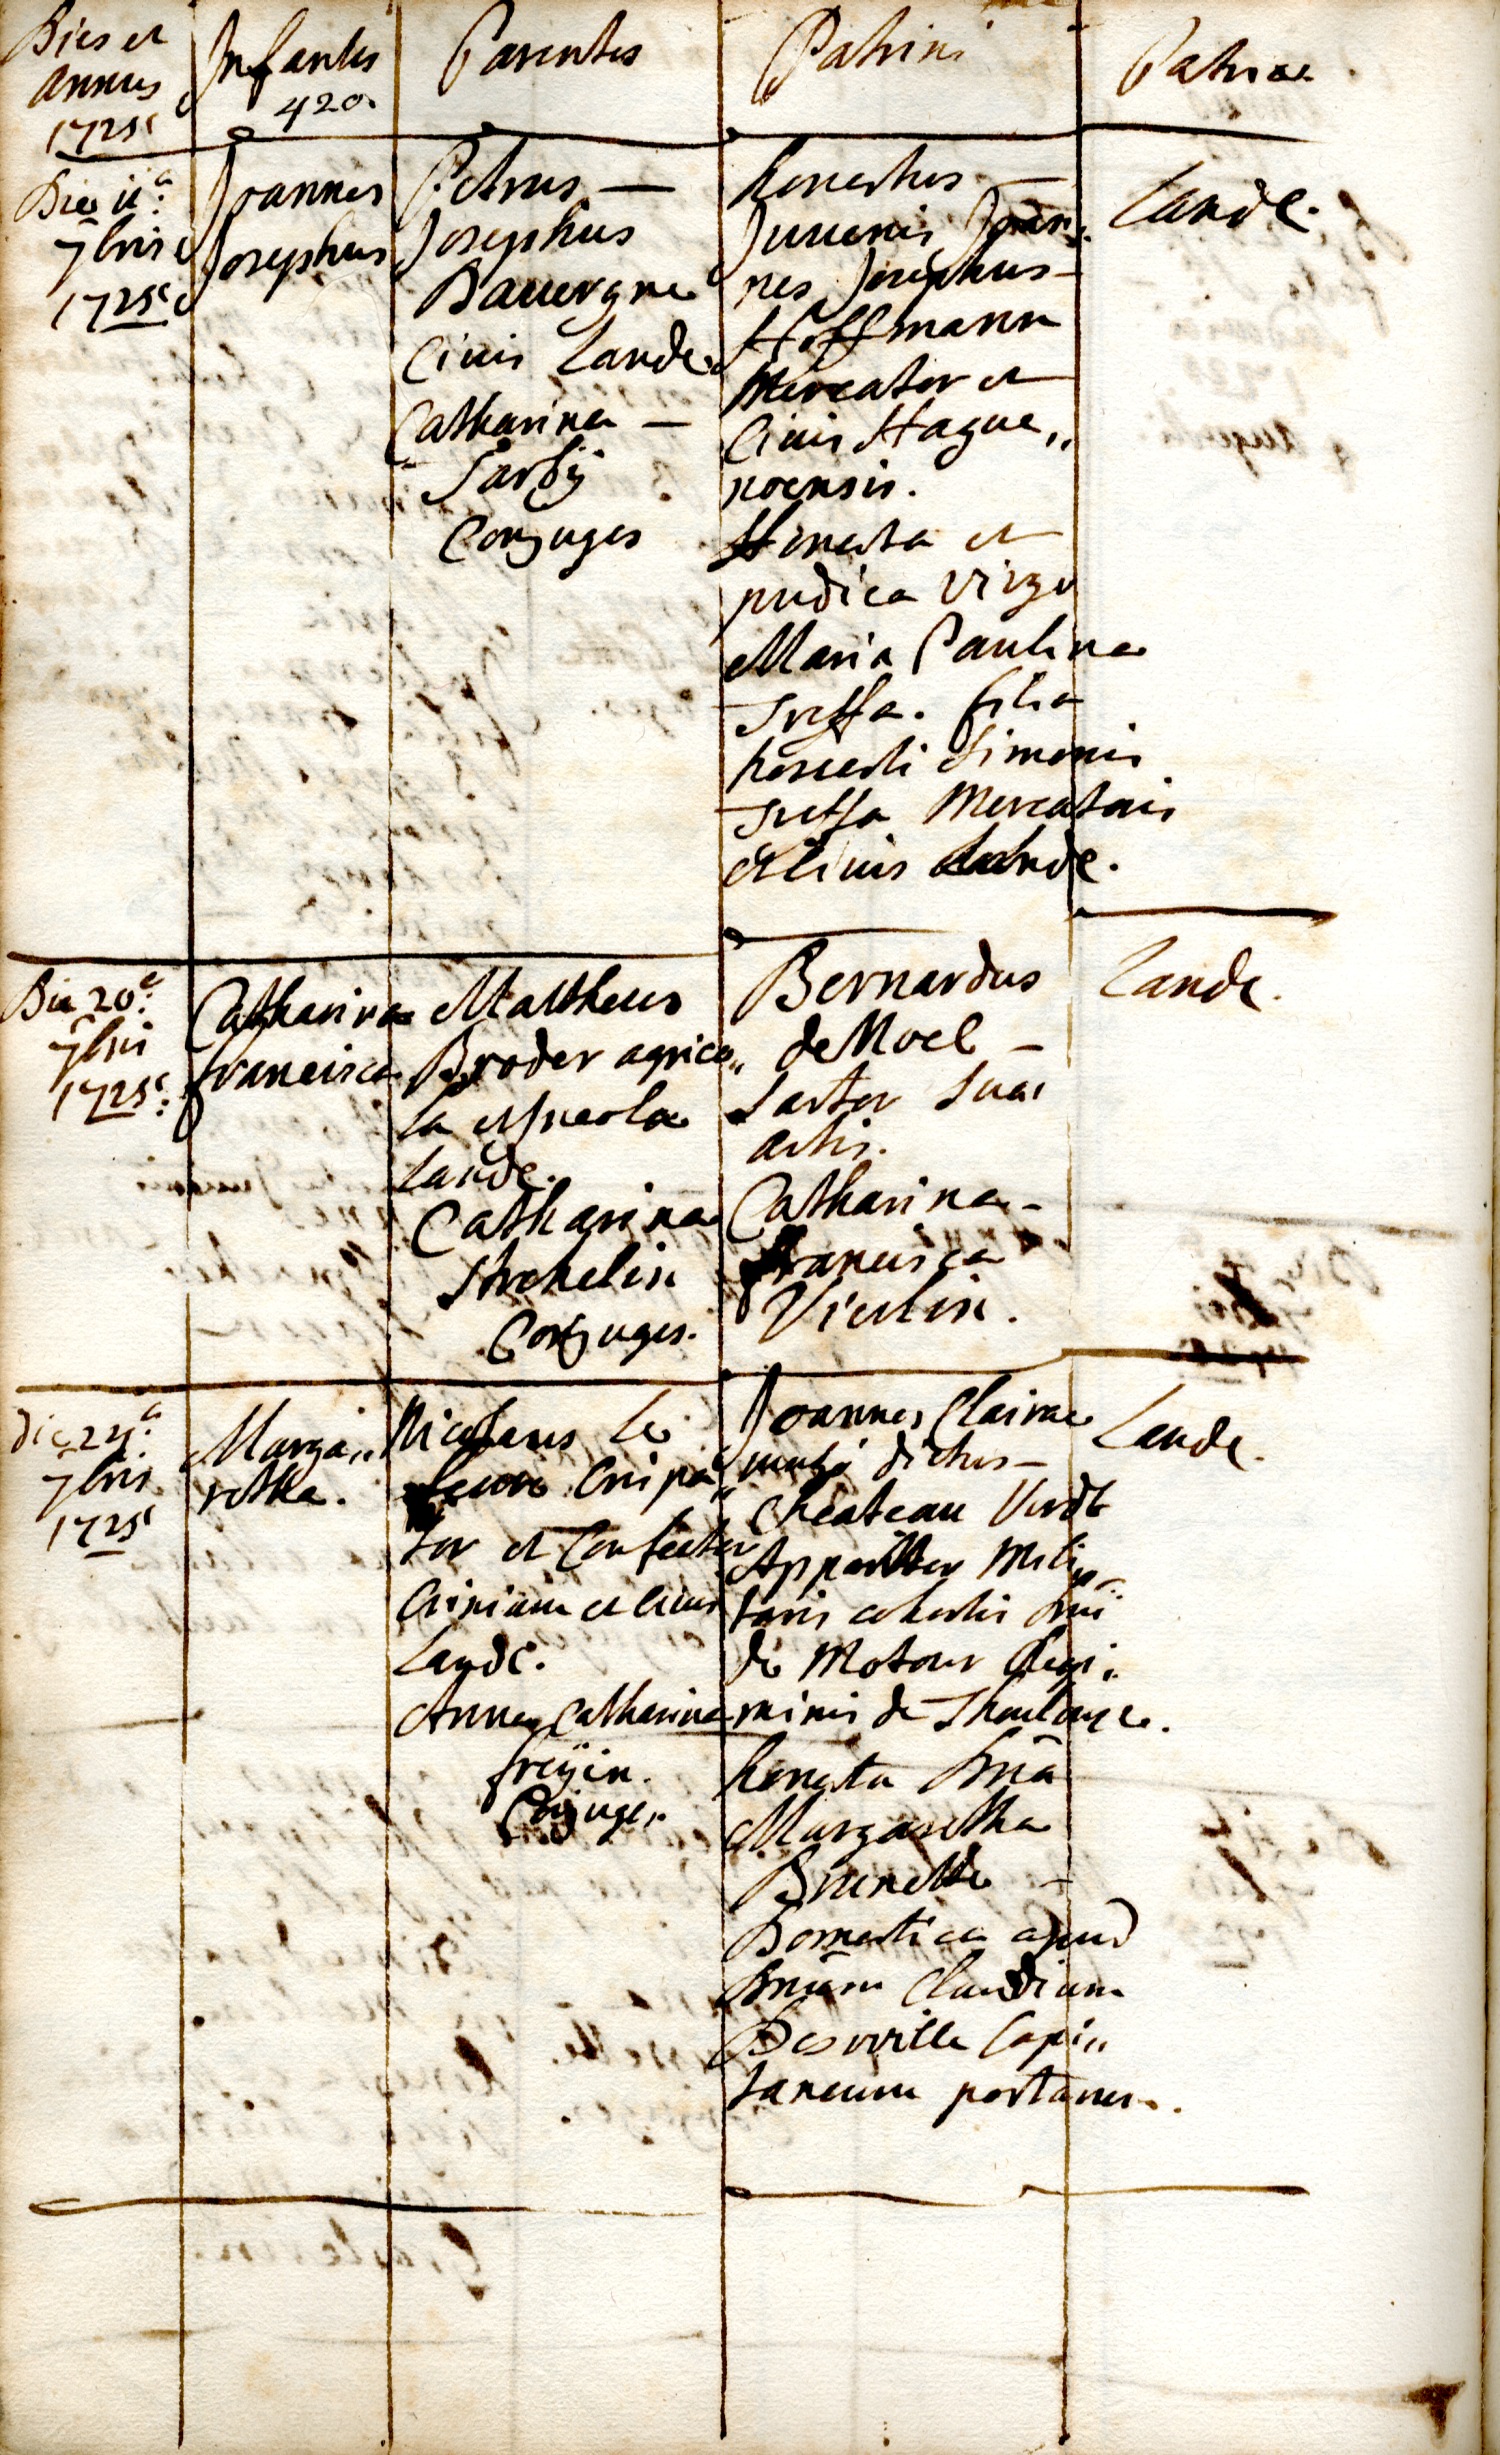 Dies et
annus
1725
Infantes
420.
Parentes
Patrini
Patriae
Die 11a:
7bris
1725
Joannes
Josephus
Petrus —
Josephus
Dauvergne
Civis Landc.
Catharina —
Sarbÿ
Conjuges
honestus —
Juvenis Joan„
nes Josephus —
Hoffmann
Mercator et
Civis Hague„
noensis.
Honesta et
pudica virgo
Maria Paulina
filia
honesti Simonis
Mercatoris
et Civis Landc.
Landc.
Die 20a:
7bris
1725
Catharina
francisca
Mattheus
Broder agrico„
la et Incola
Landc.
Catharina
Strohelin
Conjuges.
Bernardus
de Noel —
Sartor suae
artis.
Catharina —
francisca
Landc.
Die 24a:
7bris
1725
Marga„
retha.
Nicolaus le
Crispa„
tor et Confector
Crinium et Civis
Landc.
Anna Catharina
freÿin.
Conjuges.
Joannes Claire
dictus —
Chateau Verdt
Apparitor Mili„
taris cohortis Dni
de Motour Regi„
minis de Thoulouze.
honesta Dna
Margaretha
Brunette —
Domestica apud
Dnum Claudium
Desville Capi„
taneum portarum.
Landc.